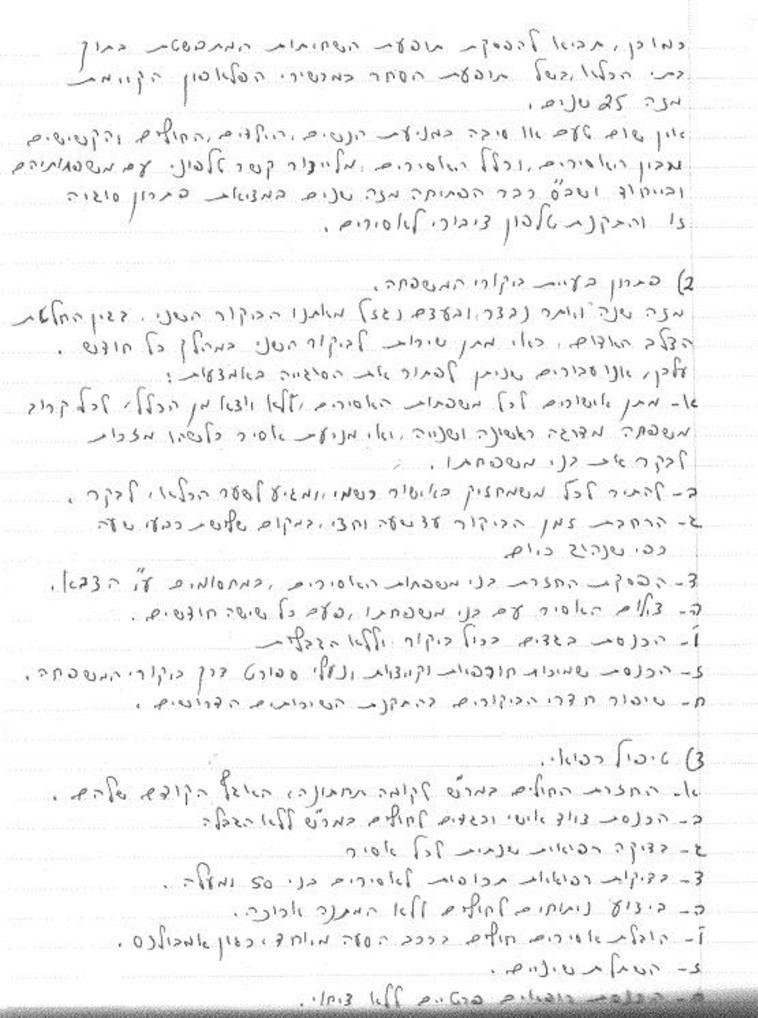 כמו כן, תביא להפסקת תופעת השחיתות המתפשטת בתוך
בתי הכלא, בשל תופעת הסחר במכשירי הפלאפון הקיימת
מזה 25 שנים.
אין שום טעם או סיבה במניעת הנשים, הילדים, החולים והקשישים
מבין האסירים, וכלל האסירים, מלייצור קשר טלפוני עם משפחותיהם
ובייחוד ושב"ס כבר הפתיחה מזה שנים במציאת פתרון סוגיה
זו והתקנת טלפון ציבורי לאסירים.
2) פתרון בעיית ביקורי המשפחה.
מזה שנה ויותר נבצר, ובעצם נגזל מאתנו הביקור השני, בגין החלטת
הצלב האדום, באי מתן שירות לביקור השני במהלך כל חודש.
על כן, אנו סבורים שניתן לפתור את הסוגייה באמצעות:
א- מתן אישורים לכל משפחות האסירים, ללא יוצא מן הכלל, לכל קרוב
משפחה מדרגה ראשונה ושנייה, ואי מניעת אסיר כלשהו מזכות
לבקר את בני משפחתו.
ב- להתיר לכל משמחזיק באישור רשמי, ומגיע לשער הכלא, לבקר.
ג- הרחבת זמן הביקור עד שעה וחצי, במקום שלושת רבעי שעה
כפי שנהוג כיום
ד- הפסקת החזרת בני משפחות האסירים, במחסומים ע"י הצבא.
ה- צילום האסיר עם בני משפחתו, פעם כל שישה חודשים.
ו- הכנסת בגדים בכול ביקור, וללא הגבלות
ז- הכנסת שמיכות חורפיות וקייציות ונעלי ספורט דרך ביקורי המשפחה.
ח- שיפור חדרי הביקורים בהתקנת השירותים הדרושים.
3) טיפול רפואי.
א- החזרת החולים במר"ש לקומה תחתונה, האגף הקודם שלהם.
ב- הכנסת ציוד אישי ובגדים לחולים במר"ש ללא הגבלה
ג- בדיקה רפואית שנתית לכל אסיר
ד- בדיקות רפואיות תכופות לאסירים בני 50 ומעלה.
ה- ביצוע ניתוחים לחולים ללא המתנה ארוכה.
ו- הובלת אסירים חולים ברכב הסעה מיוחד, כגון אמבולנס.
ז- השתלת שיניים.
ח- הכנסת רופאים פרטיים ללא דיחוי.